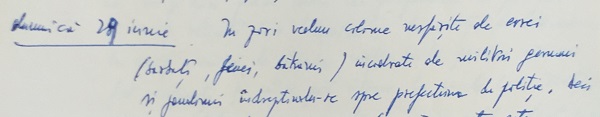 duminică 29 iunie. În zori vedem coloane nesfârșite de evrei
(bărbați, femei, bătrâni) încadrate de militari germani
și jandarmi îndreptându-se spre prefectura de poliție, deci